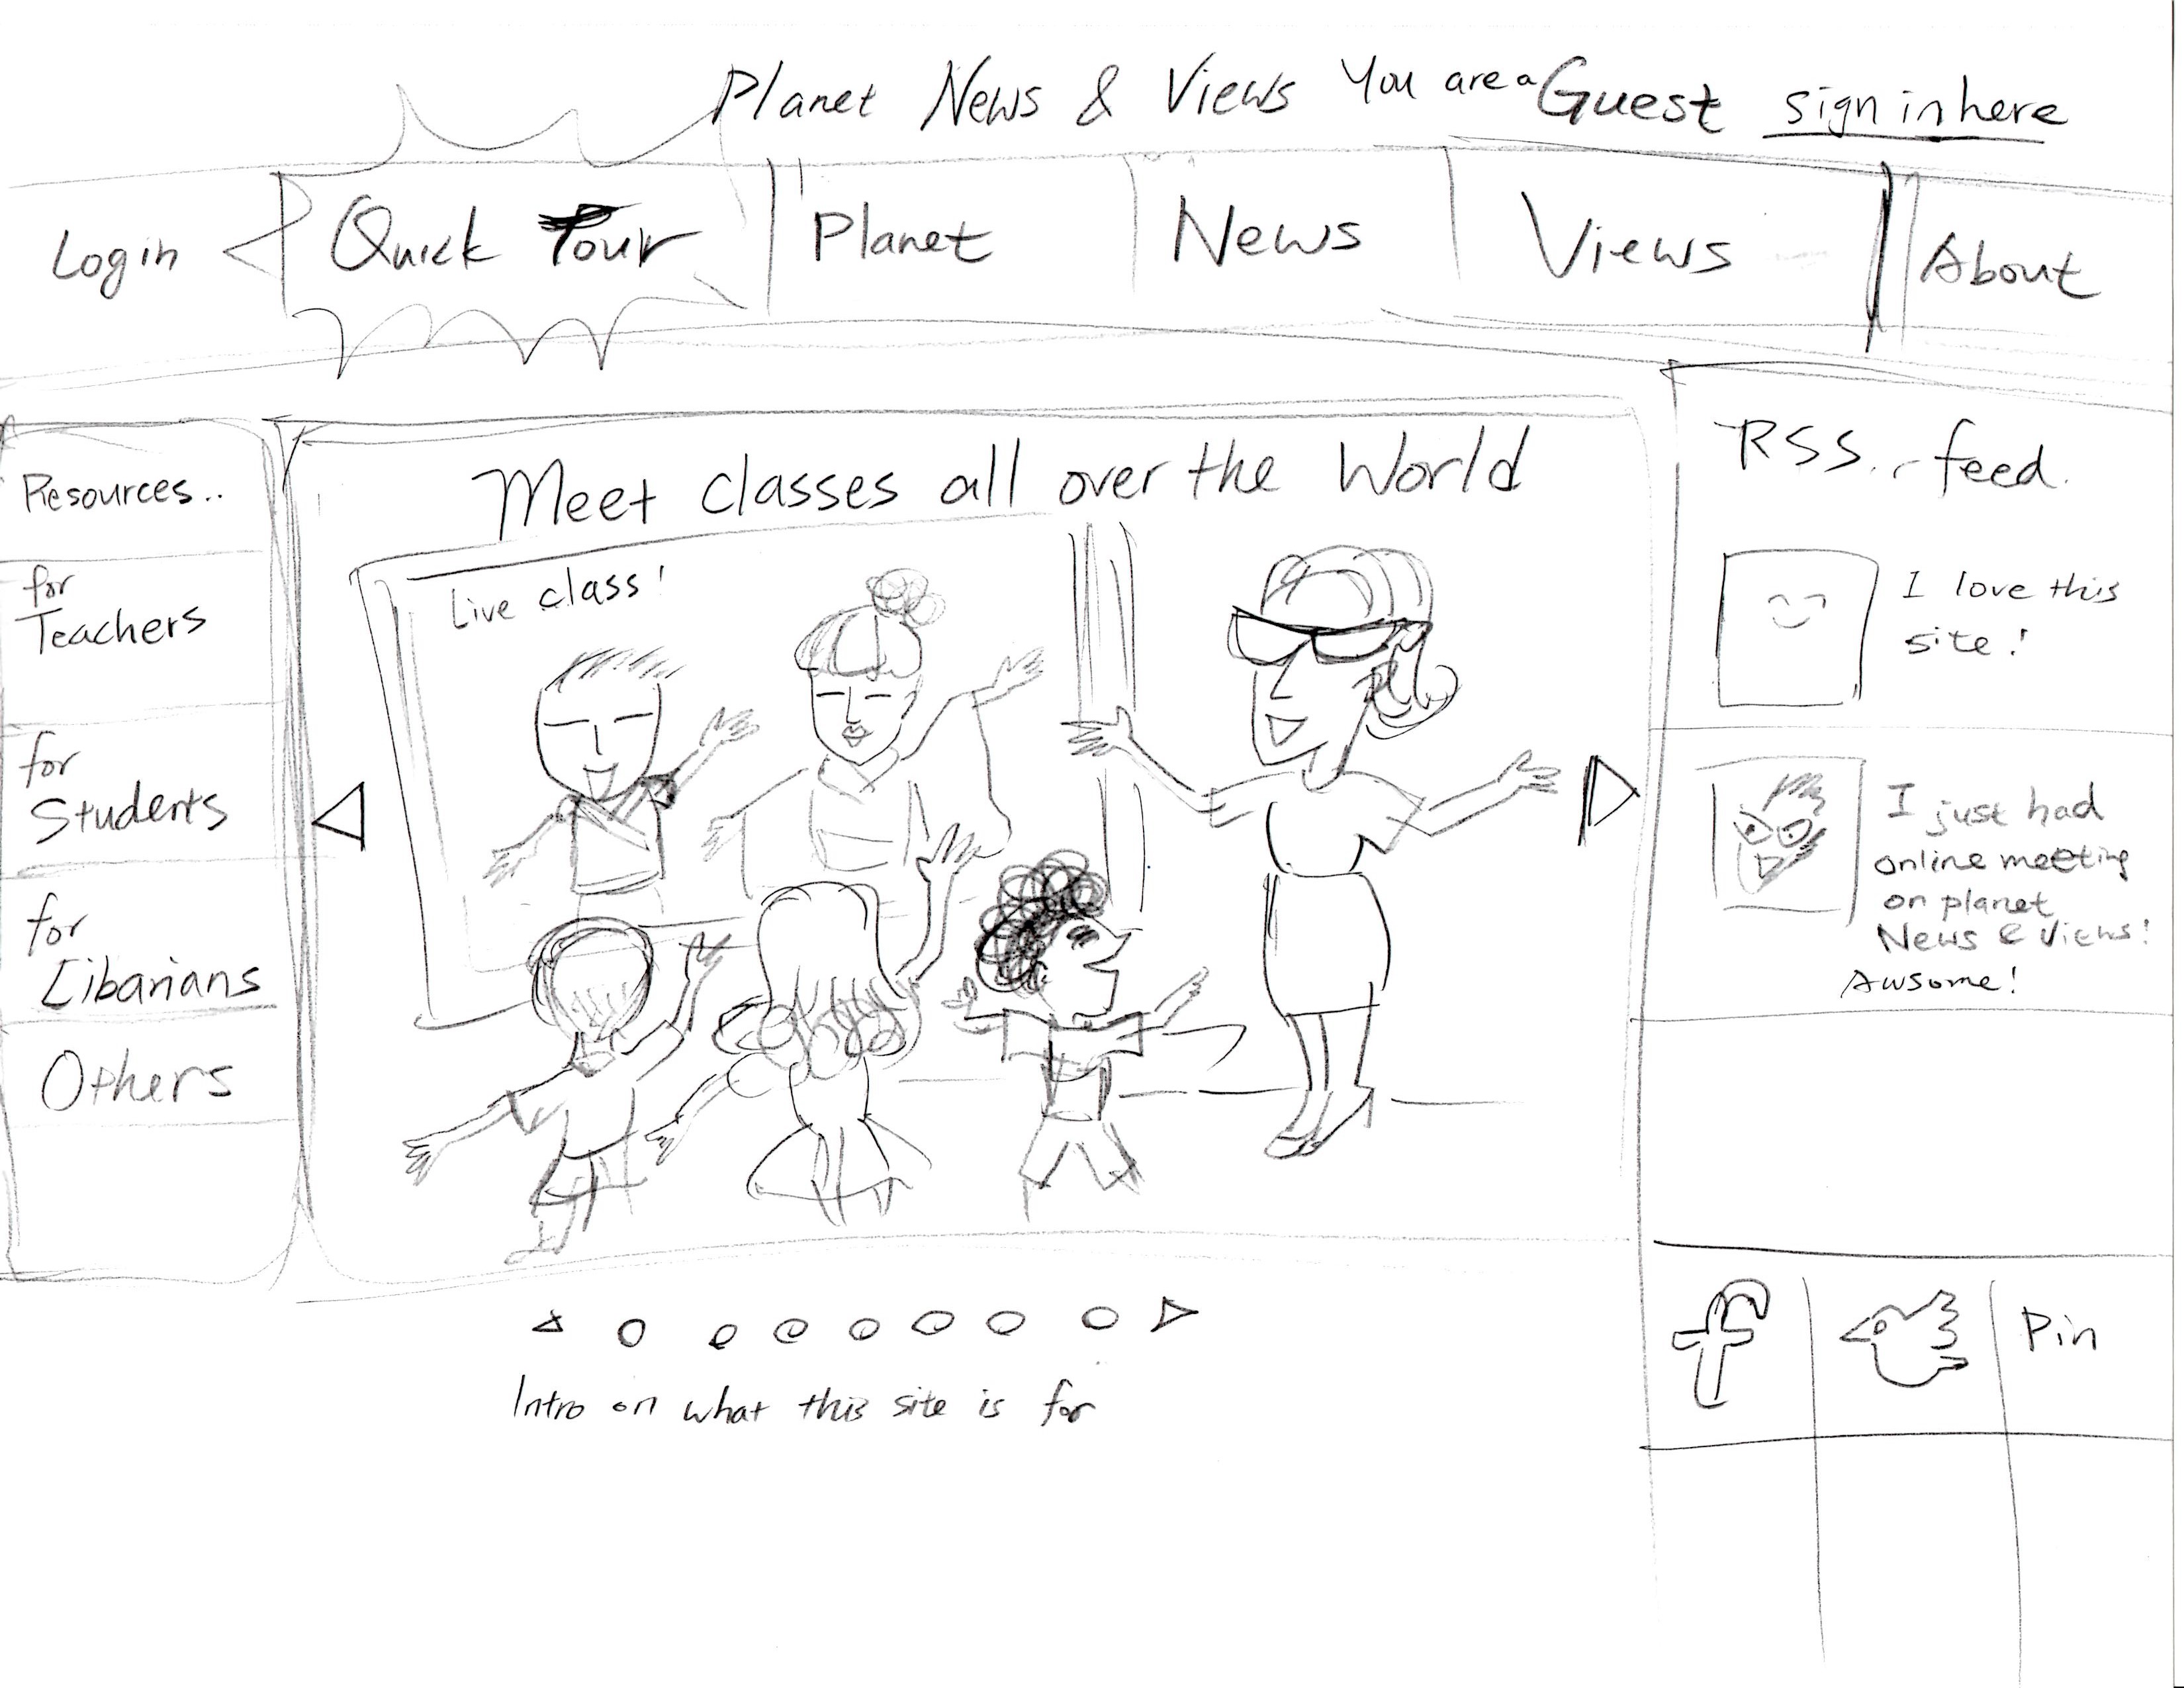 Planet News & Views You are a Guest sign in here
Login Quick Tour Planet News Views About
Resources..
for
Teachers
for
Students
for
Libarians
Others
Meet classes all over the World
Live class!
RSS.. feed.
I love this
site!
I just had
online meeting
on planet
News & Views!
Awsome!
f
Pin
Intro on what this site is for